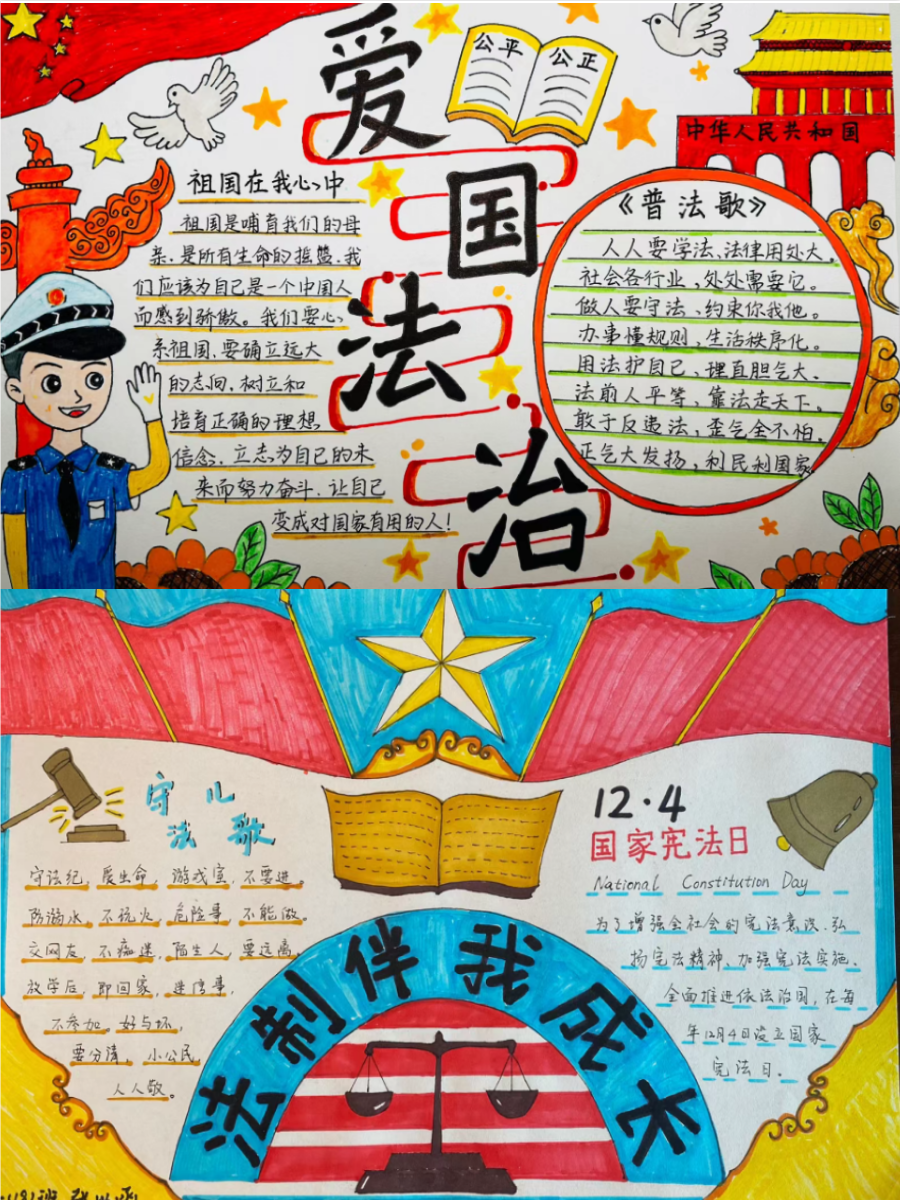 爱国法治
公平 公正
中华人民共和国
祖国在我心中
祖国是哺育我们的母
亲,是所有生命的摇篮,我
们应该为自己是一个中国人
而感到骄傲。我们要心
系祖国,要确立远大
的志向,树立和
培育正确的理想
信念,立志为自己的未
来而努力奋斗,让自己
变成对国家有用的人!
《普法歌》
人人要学法,法律用处大。
社会各行业,处处需要它。
做人要守法,约束你我他。
办事懂规则,生活秩序化。
用法护自己,理直胆气大。
法前人平等,靠法走天下。
敢于反违法,歪气全不怕。
正气大发扬,利民利国家。
守法儿歌
守法纪,爱生命,游戏室,不要进。
防溺水,不玩火,危险事,不能做。
交网友,不痴迷,陌生人,要远离,
放学后,即回家,
不参加。好与坏,
要分清,小公民,
人人敬。
12·4
国家宪法日
National Constitution Day
为了增强全社会的宪法意识,弘
扬宪法精神,加强宪法实施,
全面推进依法治国,在每
年12月4日设立国家
宪法日.
法制伴我成长